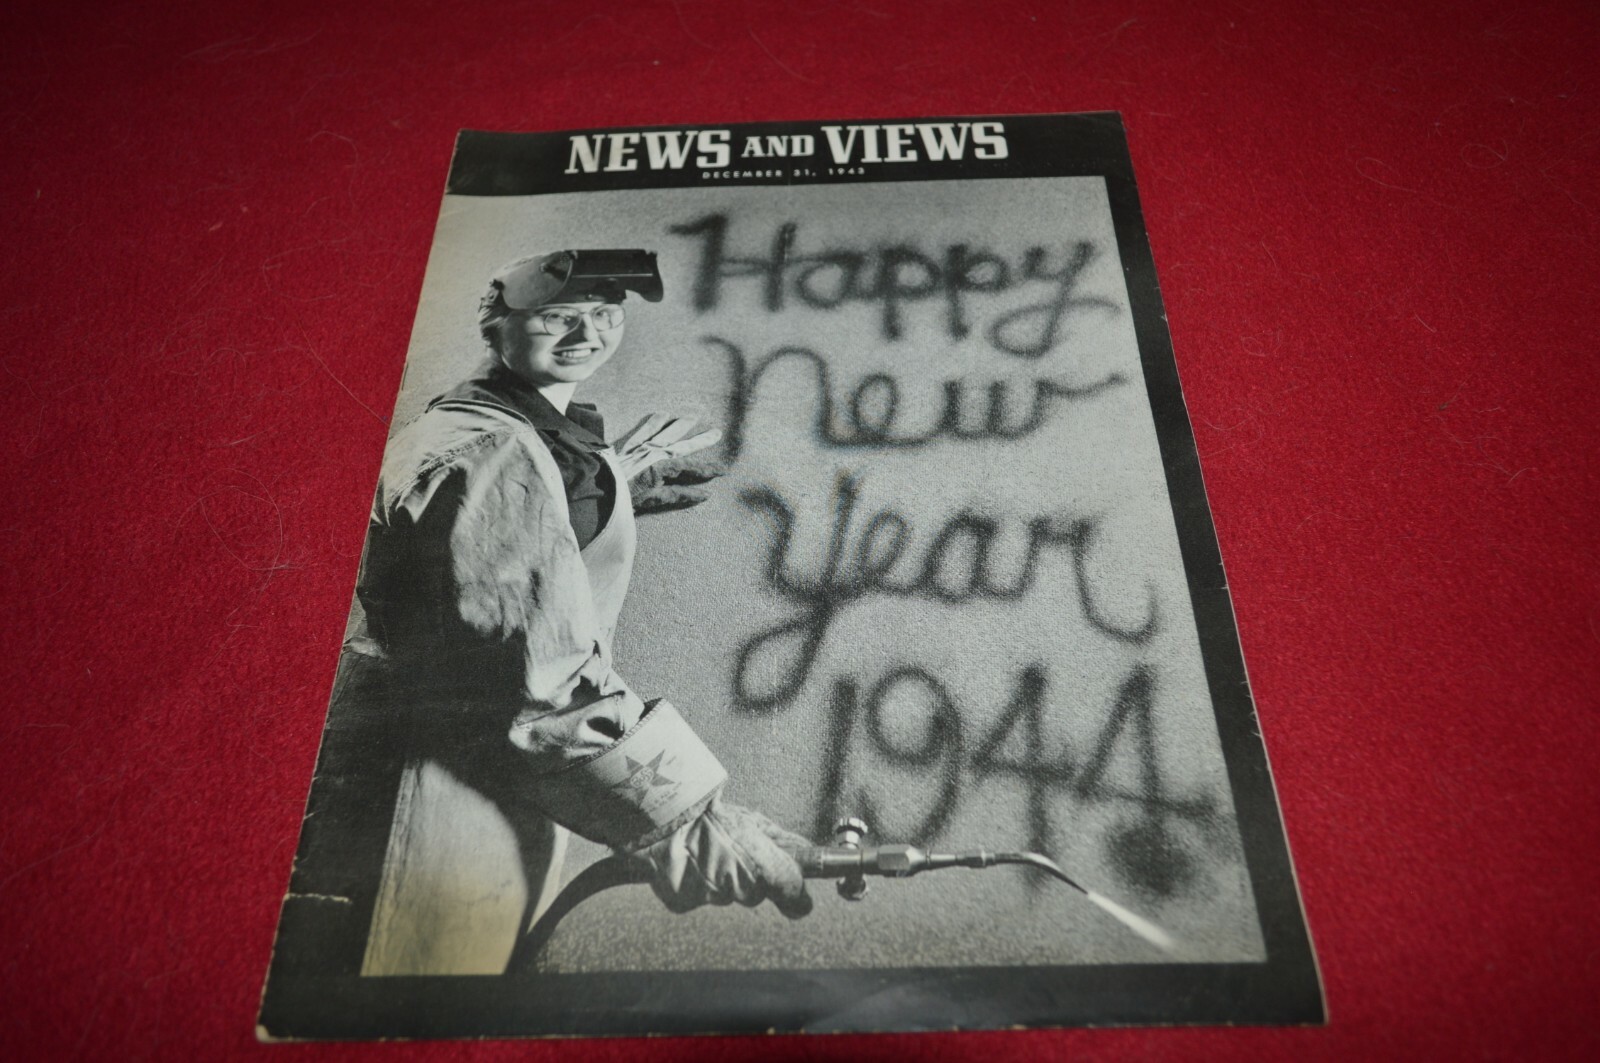 NEWS AND VIEWS
DECEMBER 31, 1943
Happy
New
Year
1944